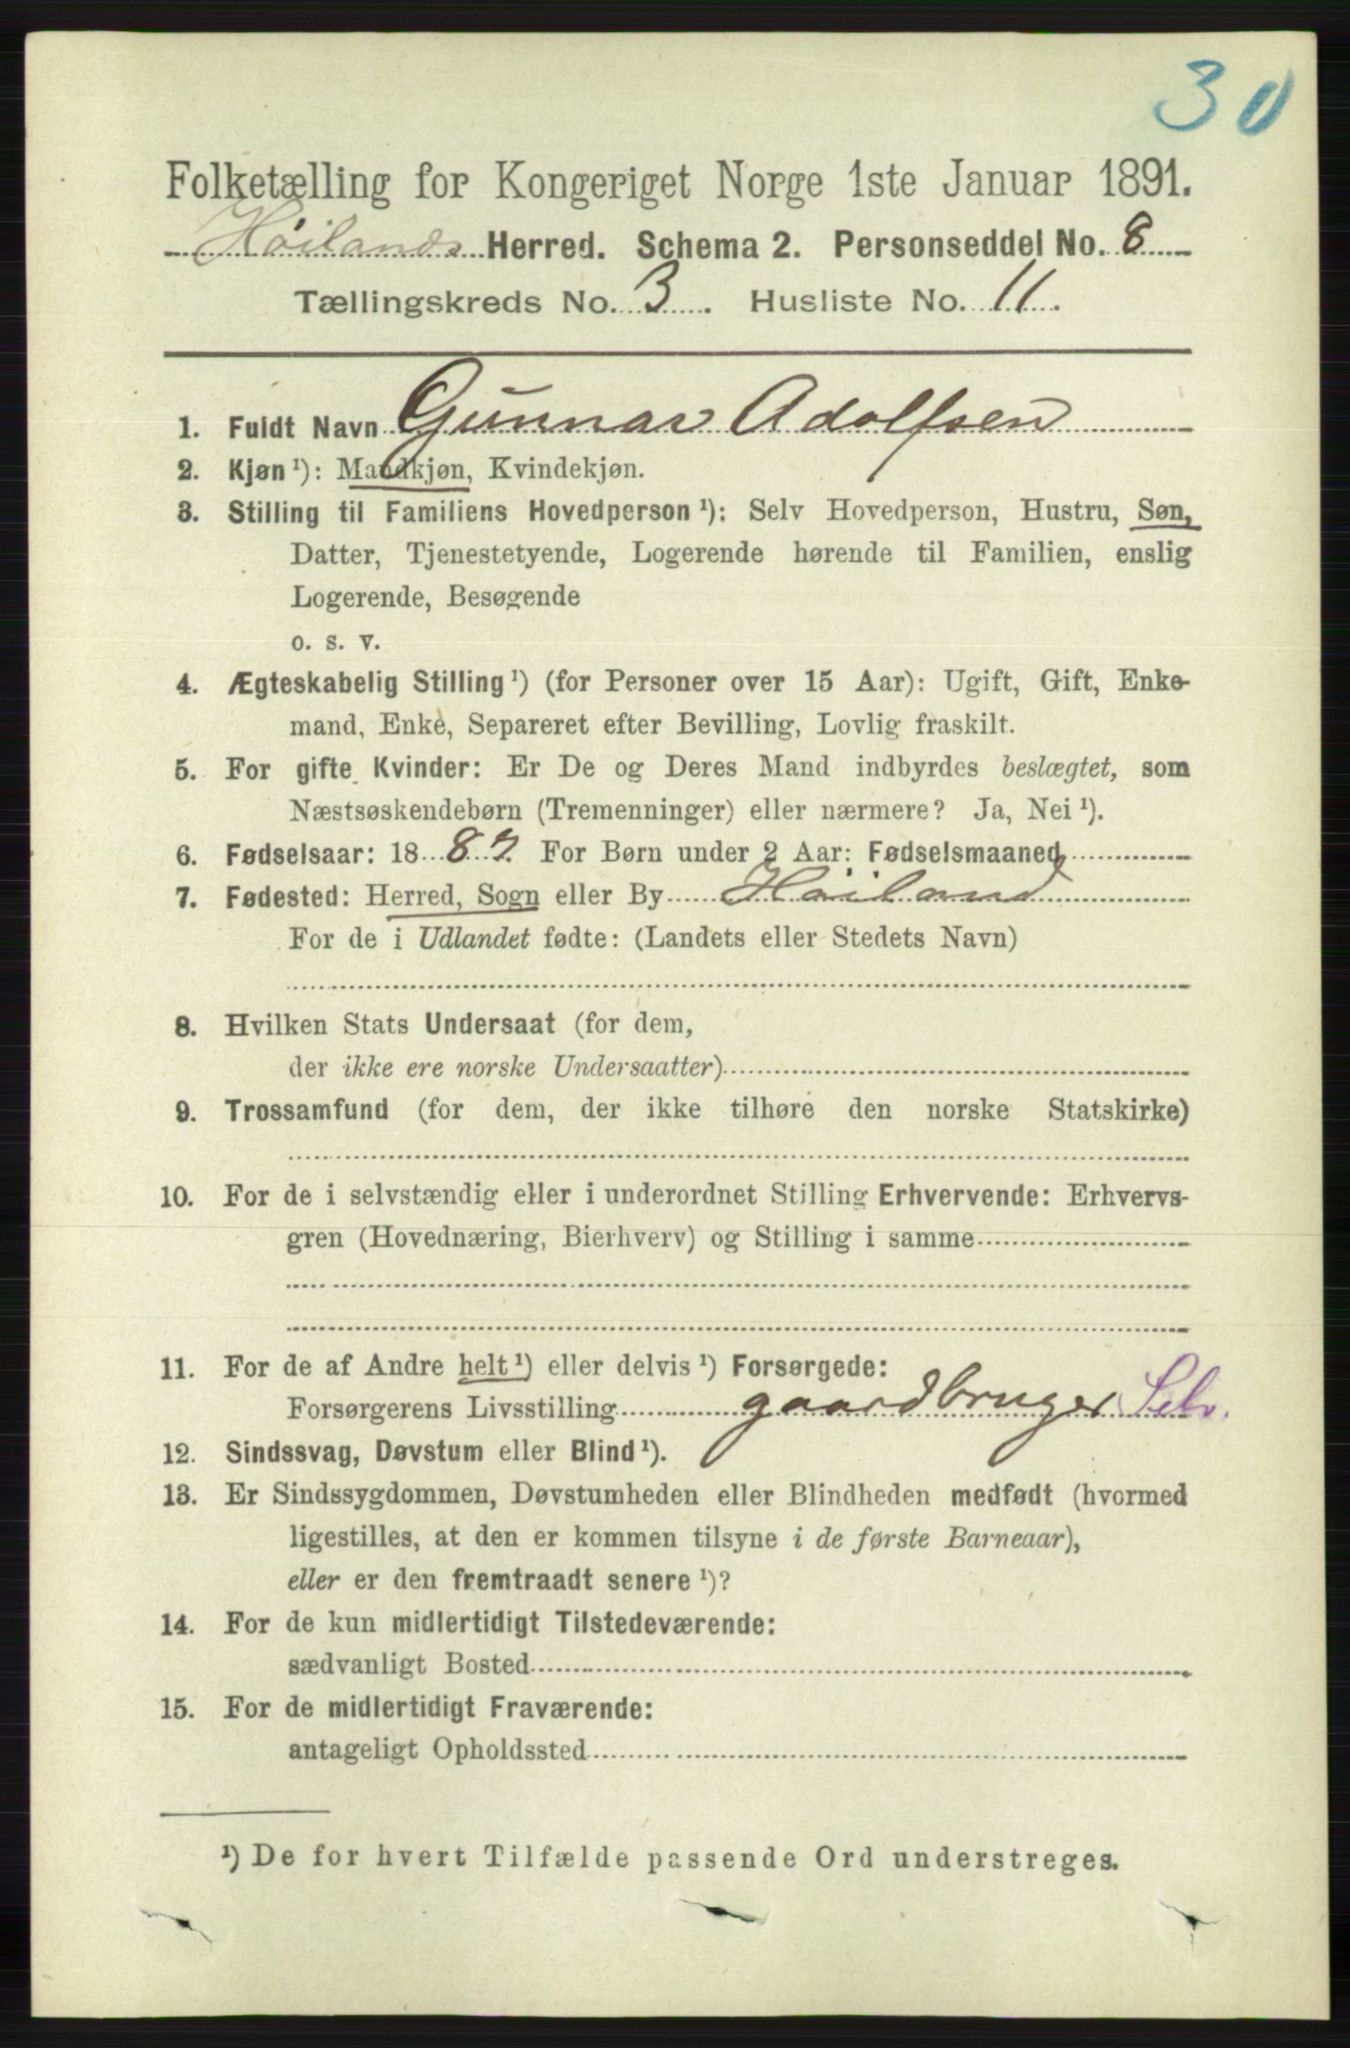 30
Folketælling for Kongeriget Norge 1ste Januar 1891.
Høilands Herred. Schema 2. Personseddel No. 8
Tællingskreds No. 3. Husliste No. 11.
1. Fuldt Navn Gunnar Adolfsen
2. Kjøn ¹): Mandkjøn, Kvindekjøn.
3. Stilling til Familiens Hovedperson ¹): Selv Hovedperson, Hustru, Søn,
Datter, Tjenestetyende, Logerende hørende til Familien, enslig
Logerende, Besøgende
o. s. v.
4. Ægteskabelig Stilling ¹) (for Personer over 15 Aar): Ugift, Gift, Enke-
mand, Enke, Separeret efter Bevilling, Lovlig fraskilt.
5. For gifte Kvinder: Er De og Deres Mand indbyrdes beslægtet, som
Næstsøskendebørn (Tremenninger) eller nærmere? Ja, Nei ¹).
6. Fødselsaar: 1887. For Børn under 2 Aar: Fødselsmaaned
7. Fødested: Herred, Sogn eller By Høiland
For de i Udlandet fødte: (Landets eller Stedets Navn)
8. Hvilken Stats Undersaat (for dem,
der ikke ere norske Undersaatter)
9. Trossamfund (for dem, der ikke tilhøre den norske Statskirke)
10. For de i selvstændig eller i underordnet Stilling Erhvervende: Erhvervs-
gren (Hovednæring, Bierhverv) og Stilling i samme
11. For de af Andre helt ¹) eller delvis ¹) Forsørgede:
Forsørgerens Livsstilling gaardbruger Selv.
12. Sindssvag, Døvstum eller Blind ¹).
13. Er Sindssygdommen, Døvstumheden eller Blindheden medfødt (hvormed
ligestilles, at den er kommen tilsyne i de første Barneaar),
eller er den fremtraadt senere ¹)?
14. For de kun midlertidigt Tilstedeværende:
sædvanligt Bosted
15. For de midlertidigt Fraværende:
antageligt Opholdssted
¹) De for hvert Tilfælde passende Ord understreges.